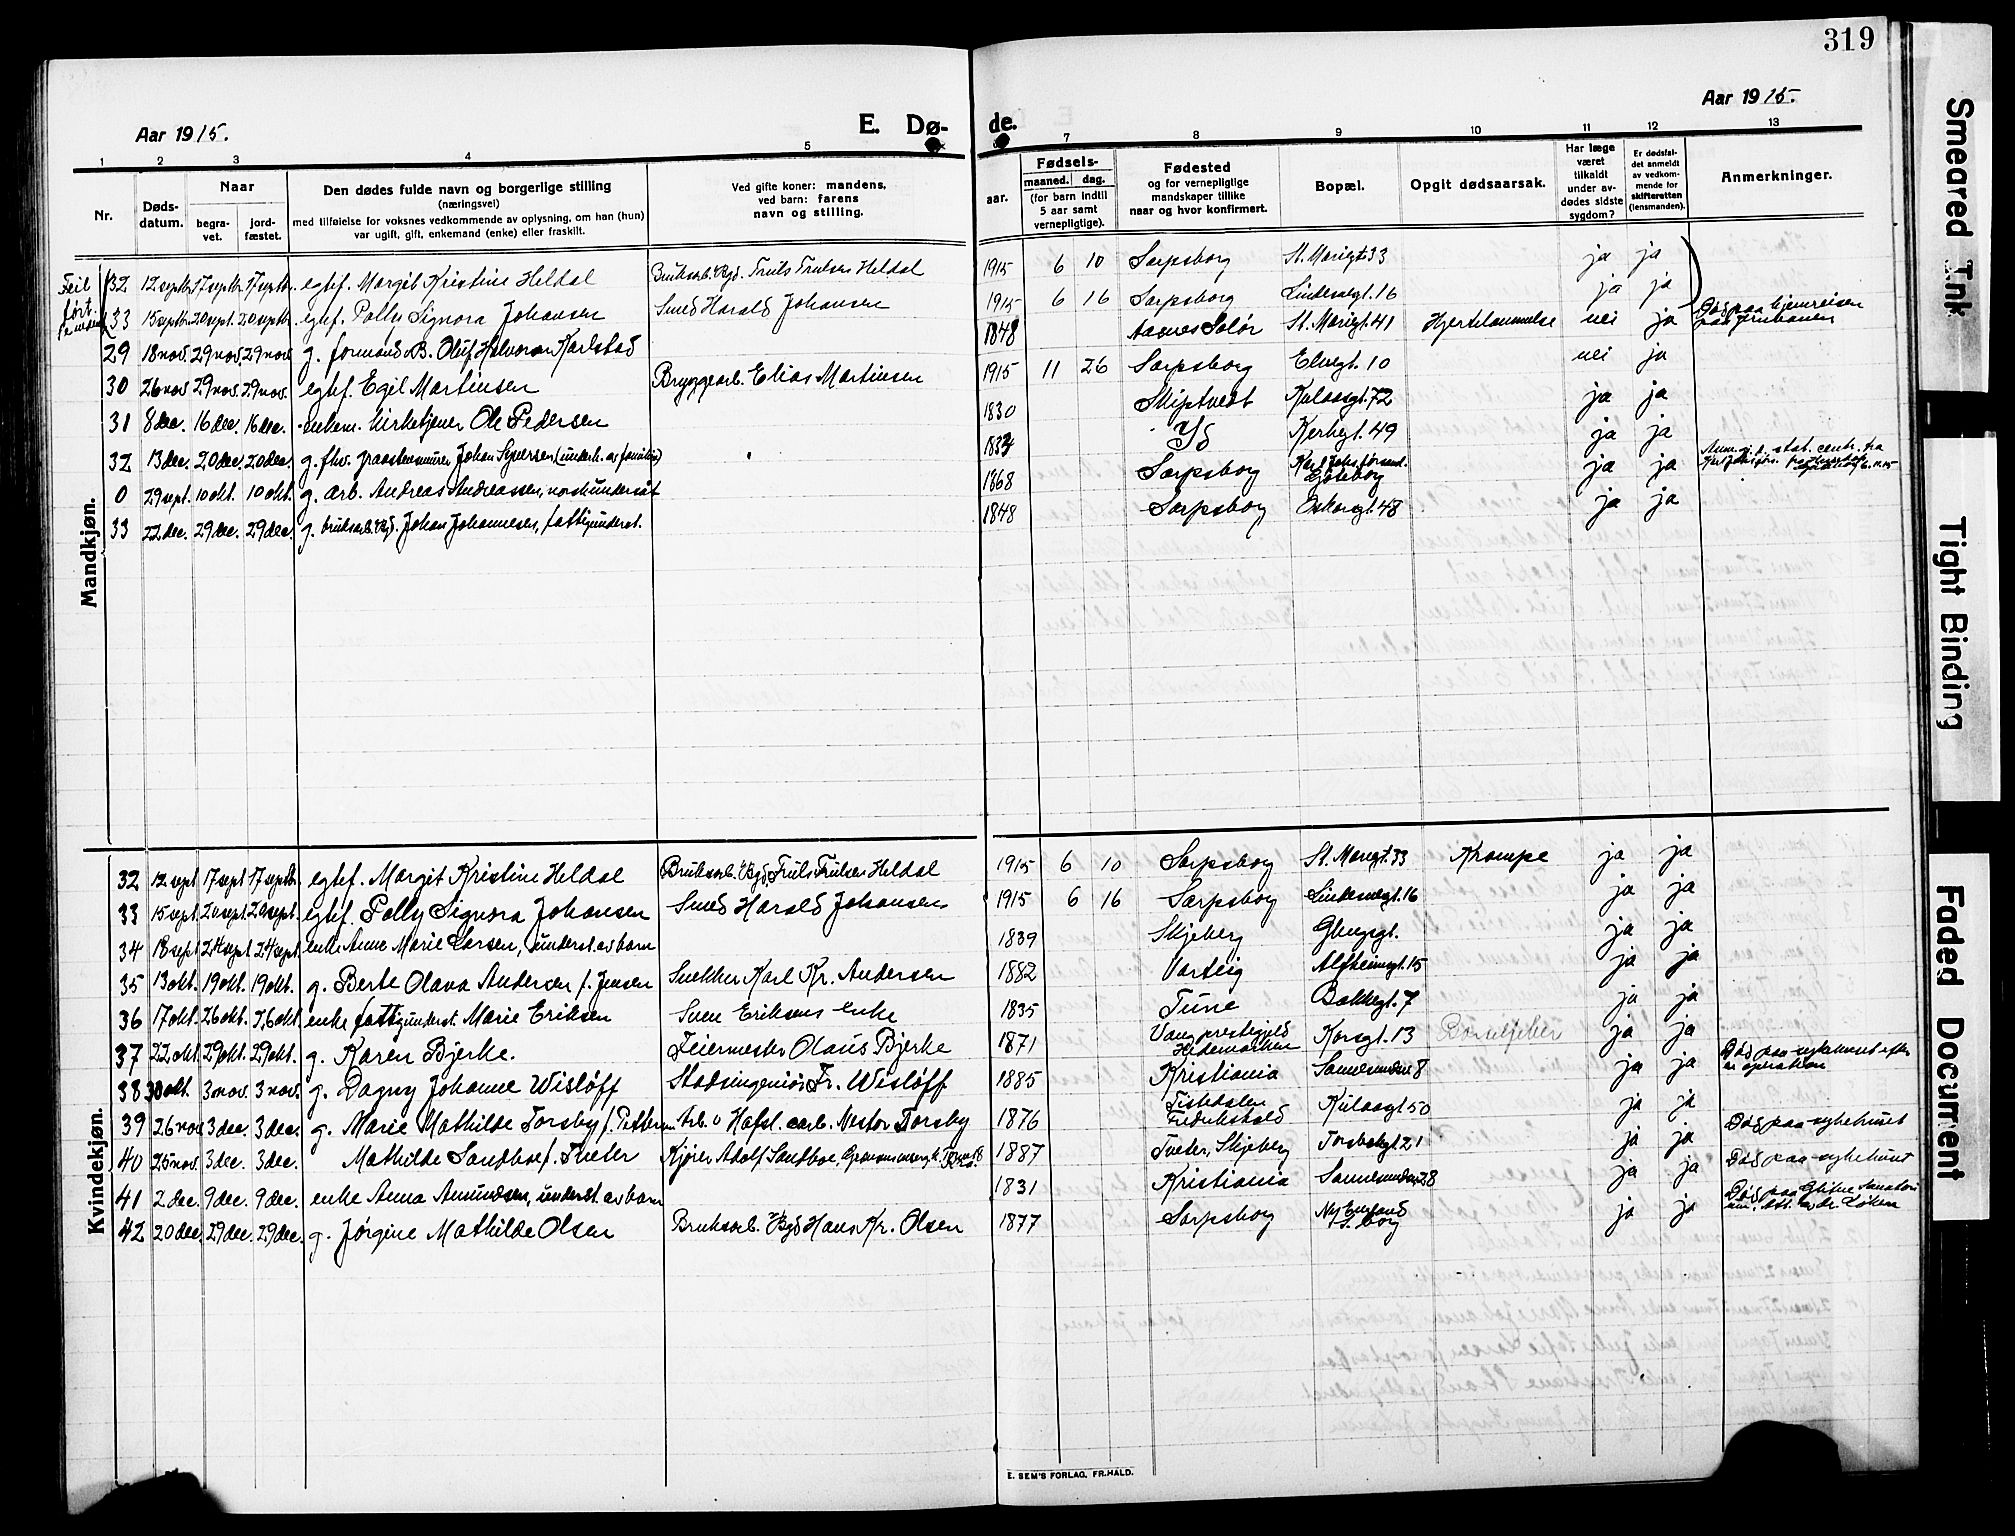 319
Aar 1915.
E. Dø-
de.
Aar 1915.
1 2 3 4 5 7 8 9 10 11 12 13
Nr.
Døds-
datum.
Naar
begra-
vet.
jord-
fæstet.
Den dødes fulde navn og borgerlige stilling
(næringsvei)
med tilføielse for voksnes vedkommende av oplysning, om han (hun)
var ugift, gift, enkemand (enke) eller fraskilt.
Ved gifte koner: mandens,
ved barn: farens
navn og stilling.
aar.
Fødsels-
maaned. dag.
(for barn indtil
5 aar samt
vernepligtige).
Fødested
og for vernepligtige
mandskaper tillike
naar og hvor konfirmert.
Bopæl.
Opgit dødsaarsak.
Har læge
været
tilkaldt
under av-
dødes sidste
sygdom?
Er dødsfal-
det anmeldt
av vedkom-
mende for
skifteretten
(lensmanden).
Anmerkninger.
Feil
ført
Mandkjøn.
32 12 septbr. 17 septbr. 17 septbr. egtef. Margit Kristine Heldal Bruksarb. v/Bgd. Truls Trulsen Heldal 1915 6 10 Sarpsborg St. Marigt. 33 ja ja
33 15 septbr. 20 sept. 20 septbr. egtef. Polly Signora Johansen Smed Harald Johansen 1915 6 16 Sarpsborg Lindesælgt. 16 ja ja
29 18 nov. 29 nov. 29 nov. g. formand v. B. Oluf Halvorsen Karlstad 1848 Aasnes Solør St. Marigt. 41 Hjertelammelse nei ja Død paa hjemreisen
paa jernbanen
30 26 nov. 29 nov. 29 nov. egtef. Egil Martinsen Bryggearb. Elias Martinsen 1915 11 26 Sarpsborg Elvegt. 10 nei ja
31 8 dec. 16 dec. 16 dec. enkem. kirketjener Ole Pedersen 1830 Skiptvedt Kulaasgt. 72 ja ja
32 13 dec. 20 dec. 20 dec. g. fhv. graastensmurer Johan Syversen (underh. av familie) Id Kirkegt. 49 ja ja
0 29 sept. 10 okt. 10 okt. g. arb. Andreas Andreassen, norsk undersåt 1868 Sarpsborg Karl Johs. forsaml.
Göteborg ja ja
33 22 dec. 29 dec. 29 dec. g. bruksarb. v/Bgd. Johan Johannesen, fattigunderst. 1848 Sarpsborg Oskarsgt. 48 ja ja
Kvindekjøn.
32 12 sept 17 sept 17 septbr. egtef. Margit Kristine Heldal Bruksarb. v/Bgd. Truls Trulsen Heldal 1915 6 10 Sarpsborg St. Marigt. 33 Krampe ja ja
33 15 sept. 20 sept. 20 sept. egtef. Polly Signora Johansen Smed Harald Johansen 1915 6 16 Sarpsborg Lindesælgt. 16 ja ja
34 18 sept 24 sept 24 sept. enke Anne Marie Larsen, underst. av barn 1839 Skjeberg Glengsgt. ja ja
35 13 okt. 19 okt. 19 okt. g. Berte Olava Andersen f. Jensen Snekker Karl Kr. Andersen 1882 Varteig Alfheimgt. 15 ja ja
36 17 okt. 26 okt. 26 okt. enke fattigunderst. Marie Eriksen Sven Eriksens enke 1835 Tune Bakkegt. 7 ja ja
37 22 okt 29 okt. 29 okt. g. Karen Bjerke. Feiermester Olaus Bjerke 1871 Vang prestegjeld
Hedemarken Korsgt. 13 Barselfeber ja ja
38 30 okt. 3 nov. 3 nov. g. Dagny Johanne Wisløff Stadsingeniør Fr. Wisløff 1885 Kristiania Sannesundsv 8 ja ja Død paa sykehuset efter
en operation
39 26 nov 3 dec. 3 dec. g. Marie Mathilde Torsby f. Pettersen Arb. v Hafsl. carb. Nestor Torsby 1876 Tistedalen
Fredrikshald Kulaasgt 50 ja ja Død paa sykehuset
40 25 nov. 3 dec. 3 dec. Mathilde Sandboe f. Tveter Kjører Adolf Sandboe, 1887 Tveter, Skjeberg Torsbekgt. 21 ja ja Død paa sykehuset
41 2 dec. 9 dec. 9 dec. enke Anna Amundsen, underst. av barn 1831 Kristiania Sannesundsv 28 ja ja
42 20 dec. 29 dec. 29 dec. g. Jørgine Mathilde Olsen Bruksarb. v/Bgd Hans Kr. Olsen 1877 Sarpsborg ja ja Død paa Glitne Sanatori
um. Att. av dr. Løken
E. SEM'S FORLAG, FR.HALD.
Smeared Ink
Tight Binding
Faded Document